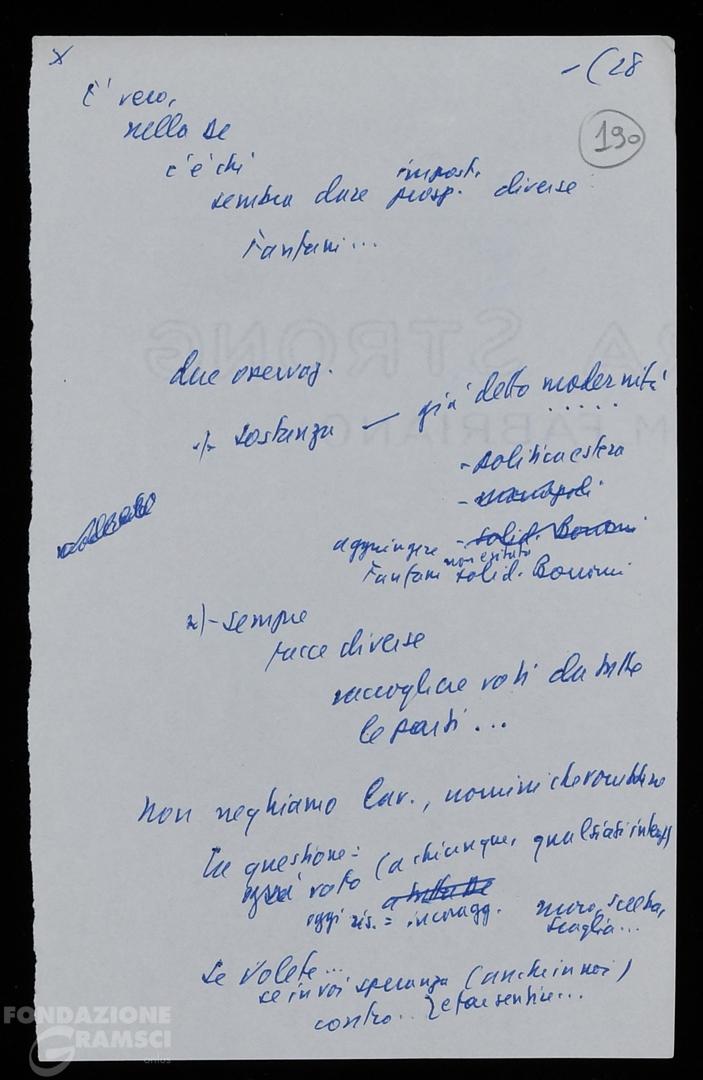 x
– (28
190
È vero,
nella DC
c'è chi
impost.
sembra dare prosp. diverse
Fanfani...
due osservaz.
1)- sostanza — già detto modernità
.....
- politica estera
- monopoli
aggiungere - solid. Bonomi
non esitato
Fanfani solid. Bonomi
2)- sempre
facce diverse
raccogliere voti da tutte
le parti...
Non neghiamo lav., uomini che vorrebbero
La questione:
ogni voto (a chiunque, qualsiasi
a tutta DC
oggi = incoragg. Moro, Scelba,
Scaglia...
Se volete...
se in voi speranza (anche in noi)
contro..
FONDAZIONE
GRAMSCI
onlus